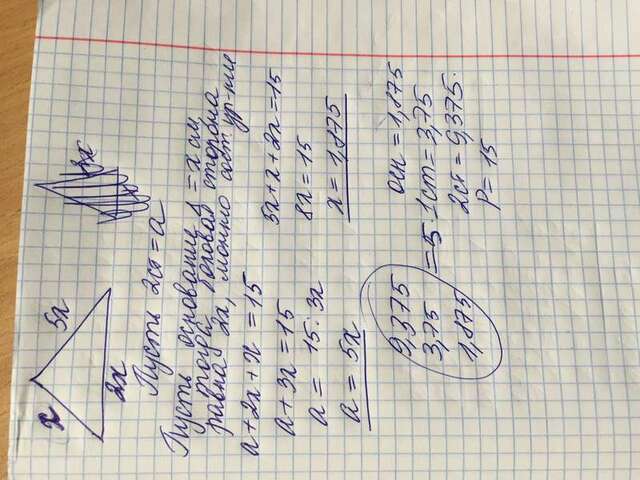 x 5x
2x
Пусть 2ст = a
Пусть основание Δ = x см,
тогда боковая сторона
равна 2x, можно сост ур-ние
a + 2x + x = 15
a + 3x = 15
a = 15 : 3x
a = 5x
5x + x + 2x = 15
8x = 15
x = 1,875
9,375
3,75
1,875
= 5
осн = 1,875
1ст = 3,75
2ст = 9,375
P = 15